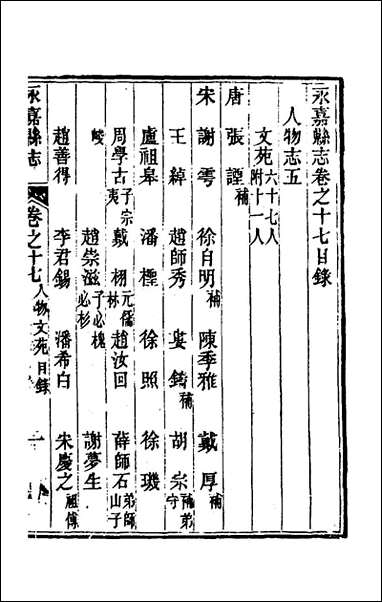 永嘉縣志卷之十七目錄
人物志五
文苑六十七人附十一人
唐 張諲補
宋 謝雩 徐自明補 陳季雅 戴厚補
王綽 趙師秀 婁鑄補 胡宗補弟守
盧祖皋 潘檉 徐照 徐璣
周學古子宗夷 戴栩元儒林 趙汝回 薛師石弟師山子
崚 趙崇滋子必槐必杉 謝夢生
趙善得 李君錫 潘希白 朱慶之祖傅
永嘉縣志 卷之十七 人物 文苑 目錄 一